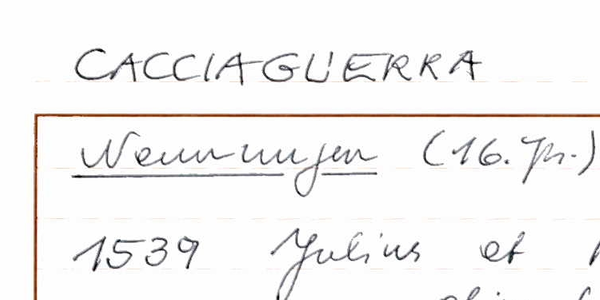 CACCIAGUERRA
Nennungen (16. Jh.)
1539 Julius et